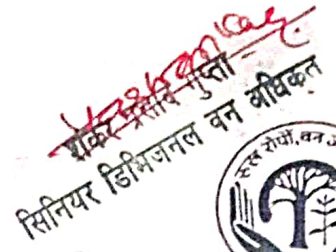 शंकर प्रसाद गुप्ता
सिनियर डिभिजनल वन अधिकृत
रुख रोपौं, वन